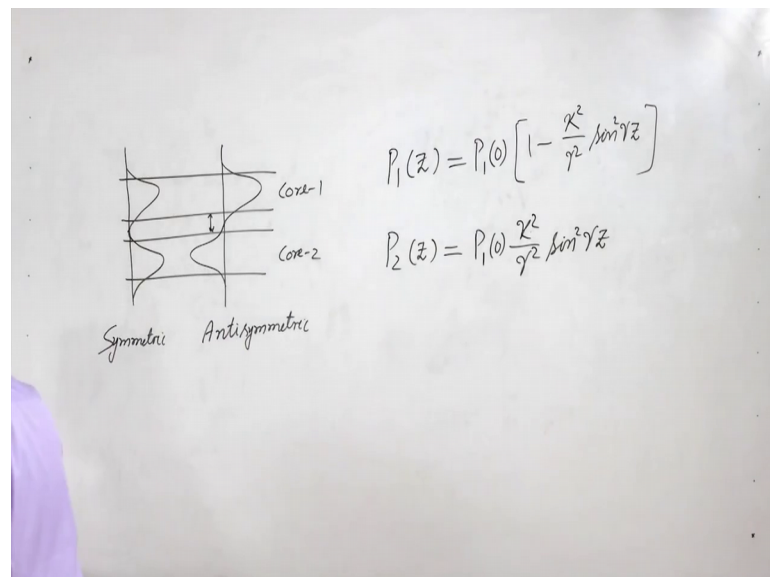 Core-1
Core-2
Symmetric Antisymmetric
P₁(Z) = P₁(0) [1 - κ²/γ² sin²γZ]
P₂(Z) = P₁(0) κ²/γ² sin²γZ